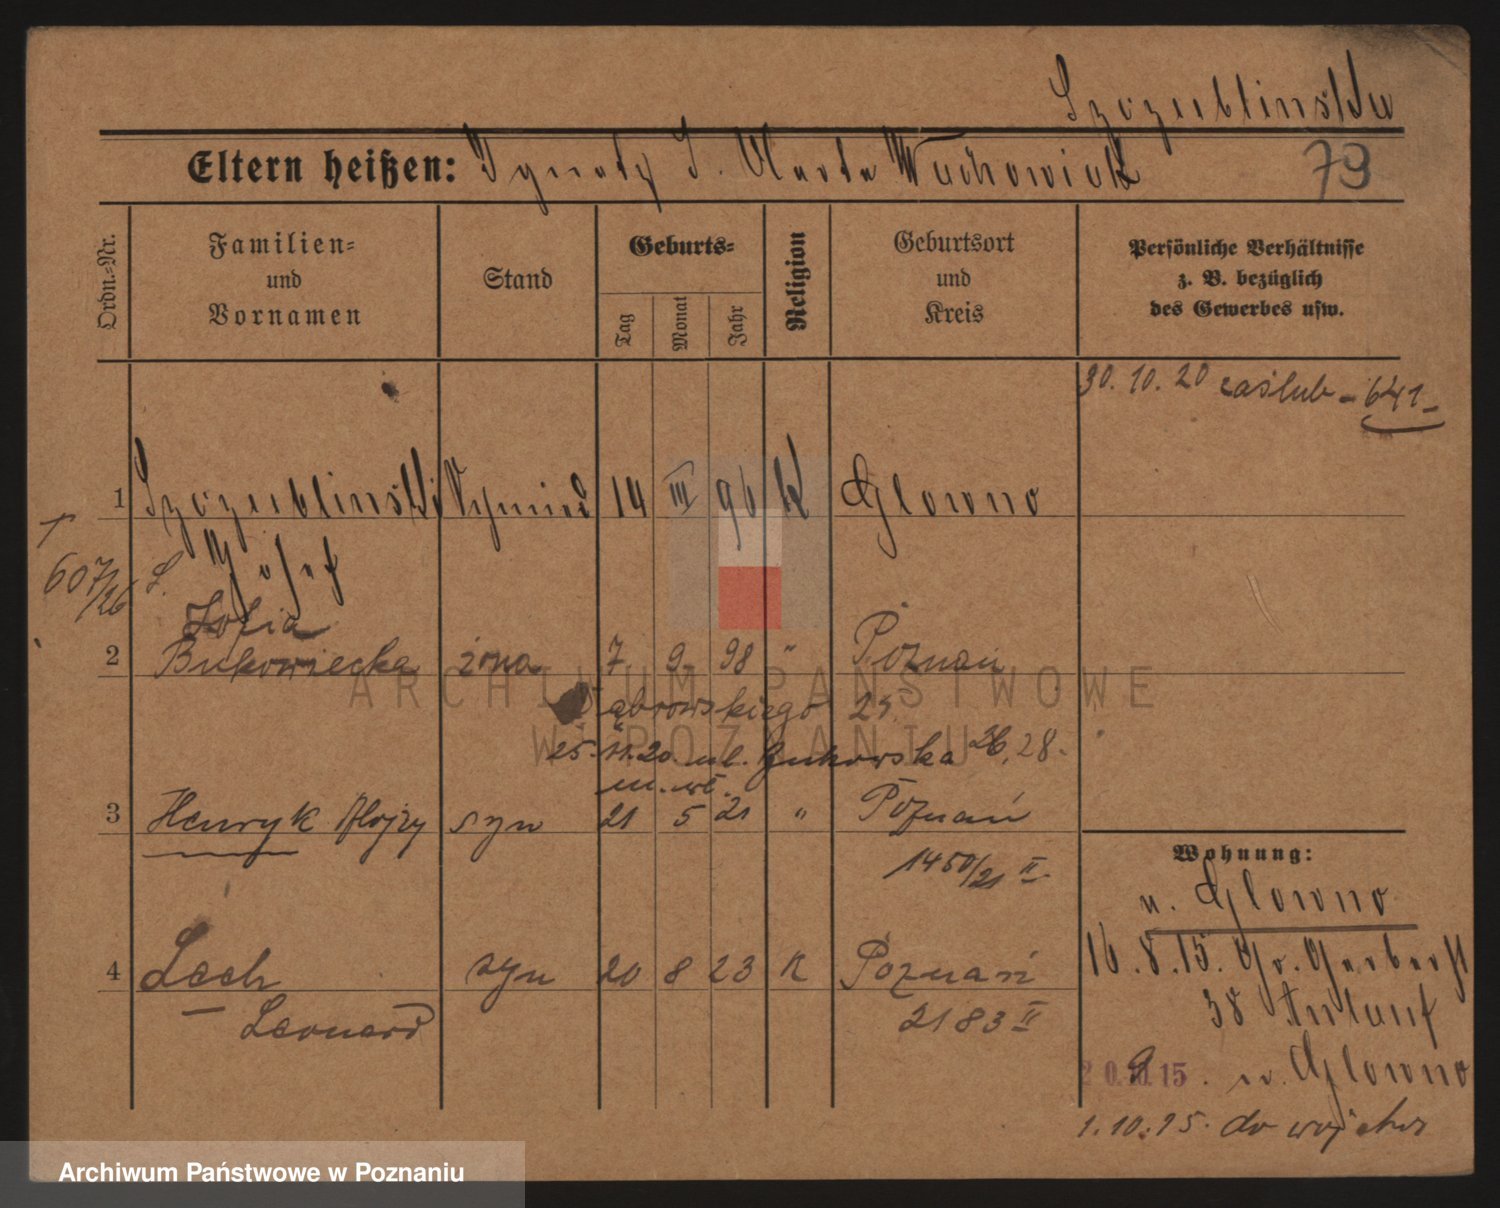 Szczublinski
Eltern heißen: Ignatz S. Marta Wachowiak
79
Ordn.-Nr.
Familien-
und
Vornamen
Stand
Geburts-
Tag
Monat
Jahr
Religion
Geburtsort
und
Kreis
Persönliche Verhältnisse
z. B. bezüglich
des Gewerbes usw.
30. 10. 20 zaślub - 641 -
1 Szczublinski 14 III 96 K Glowno
Józef
607/26
Zofia
2 Bukowiecka żona 7 9 98 " Poznań
Dąbrowskiego 25.
25. 11. 20 ul. Bukowska 26, 28.
3 Henryk Alojzy syn 21 5 21 " Poznań
1450/21 II
4 Lech syn 20 8 23 K Poznań
Leonard
2183 II
Wohnung:
n. Glowno
16. 8. 15. Gr. Gerberst
38 Anlauf
20. 9. 15. n. Glowno
1. 10. 15. do wojska
ARCHIWUM PAŃSTWOWE
W POZNANIU
Archiwum Państwowe w Poznaniu